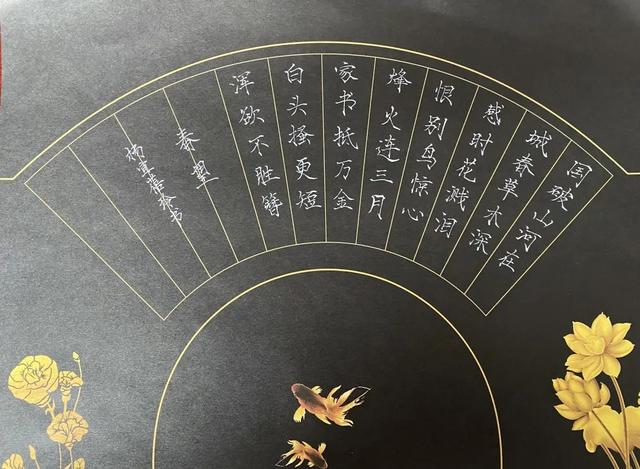 国破山河在
城春草木深
感时花溅泪
恨别鸟惊心
烽火连三月
家书抵万金
白头搔更短
浑欲不胜簪
春望
书